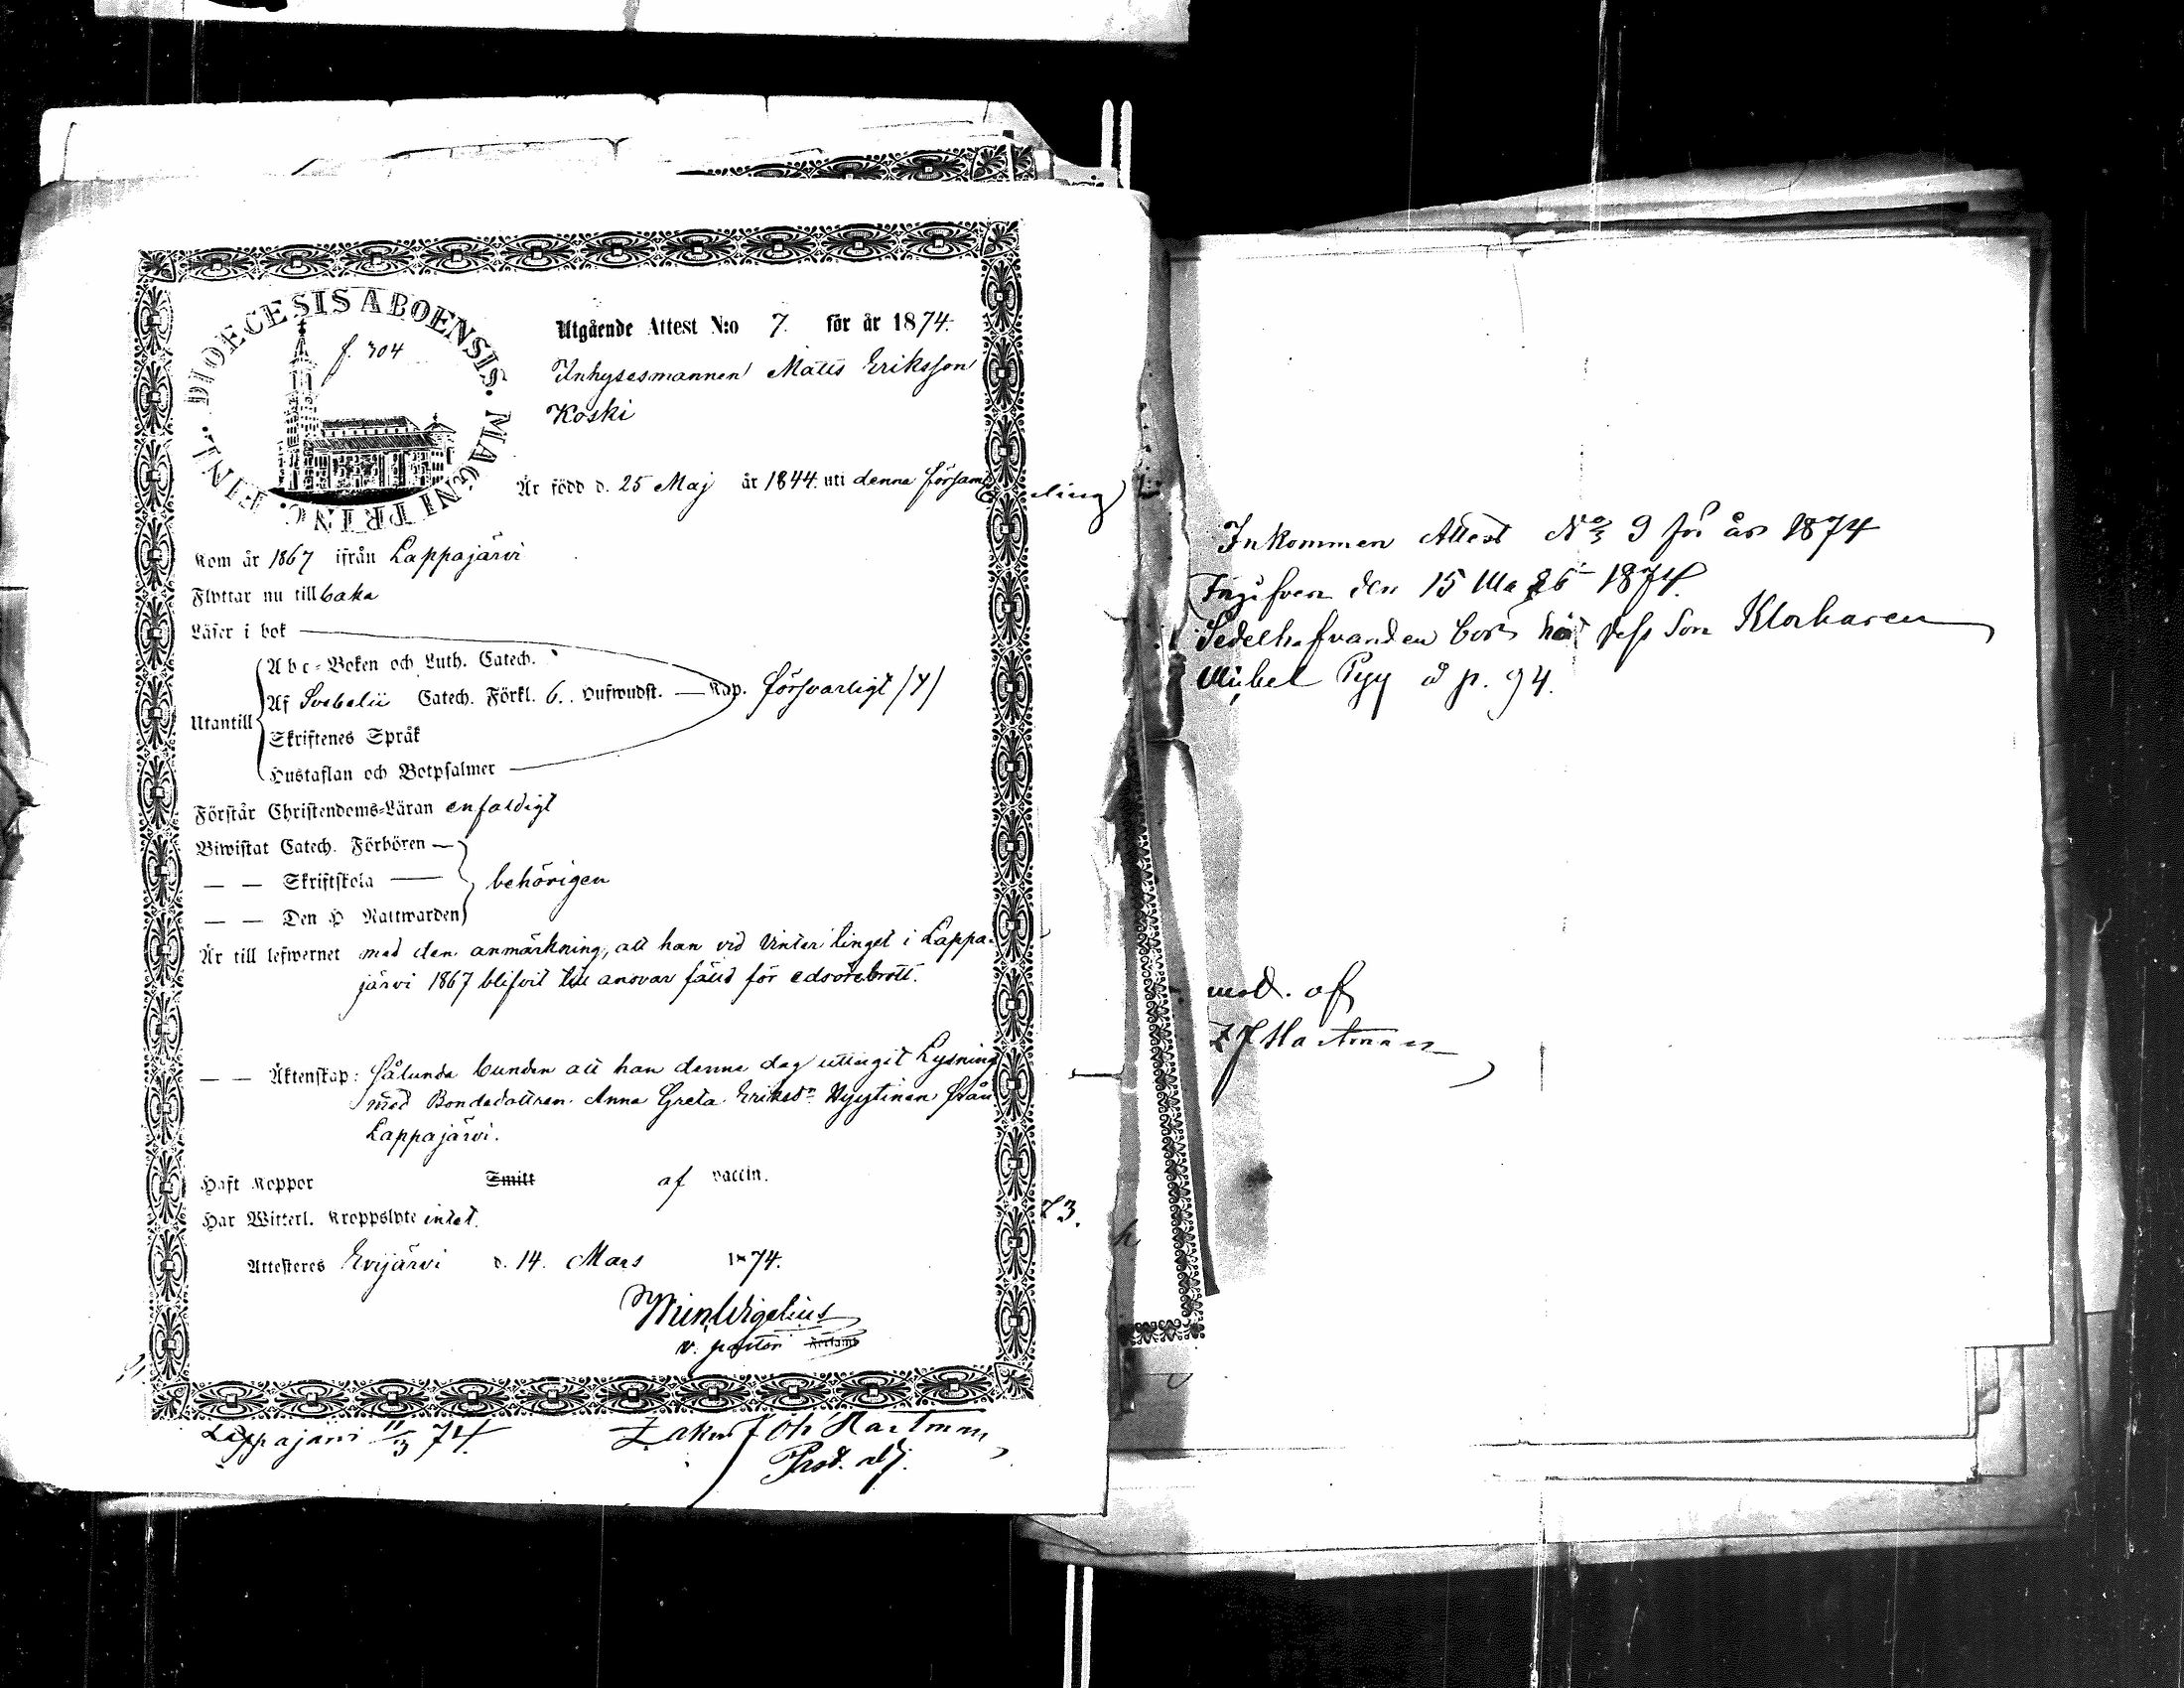 DIOECESIS ABOENSIS. MAGNI PRINC. FINL.
f. 304
Utgående Attest N:o 7. för år 1874.
Inhysesmannen Matts Eriksson
Koski
Är född d. 25 Maj år 1844. uti denna församling
Kom år 1867 ifrån Lappajärvi
Flyttar nu till baka
Läser i bok
Utantill
Abc-Boken och Luth. Catech.
Af Svebelii Catech. Förkl. 6. Hufwudst. — Kap. försvarligt /4/
Skriftenes Språk
Hustaflan och Botpsalmer
Förstår Christendoms-Läran enfaldigt
Biwistat Catech. Förhören —
— — Skriftskola — behörigen
— — Den H Nattwarden
Är till lefwernet med den anmärkning, att han vid Vintertinget i Lappa-
järvi 1867 blifvit till ansvar fälld för edsörebrott.
— — Äktenskap: sålunda bunden att han denna dag uttagit Lysning
med Bondedottren Anna Greta Eriksdr Nyytinen från
Lappajärvi.
Haft Koppor Smitt af vaccin.
Har Witterl. Kroppslyte intet.
Attesteres Evijärvi d. 14. Mars 1874.
Wigelius
v. pastor
Lappajärvi 74.
Joh Hartman
Prost. adj.
73.
Inkommen Attest No 9 för år 1874
Ingifven den 15 1874.
Sedelhafvanden bor hos dess Son
p. 94.
mod. af
Z J Hartman